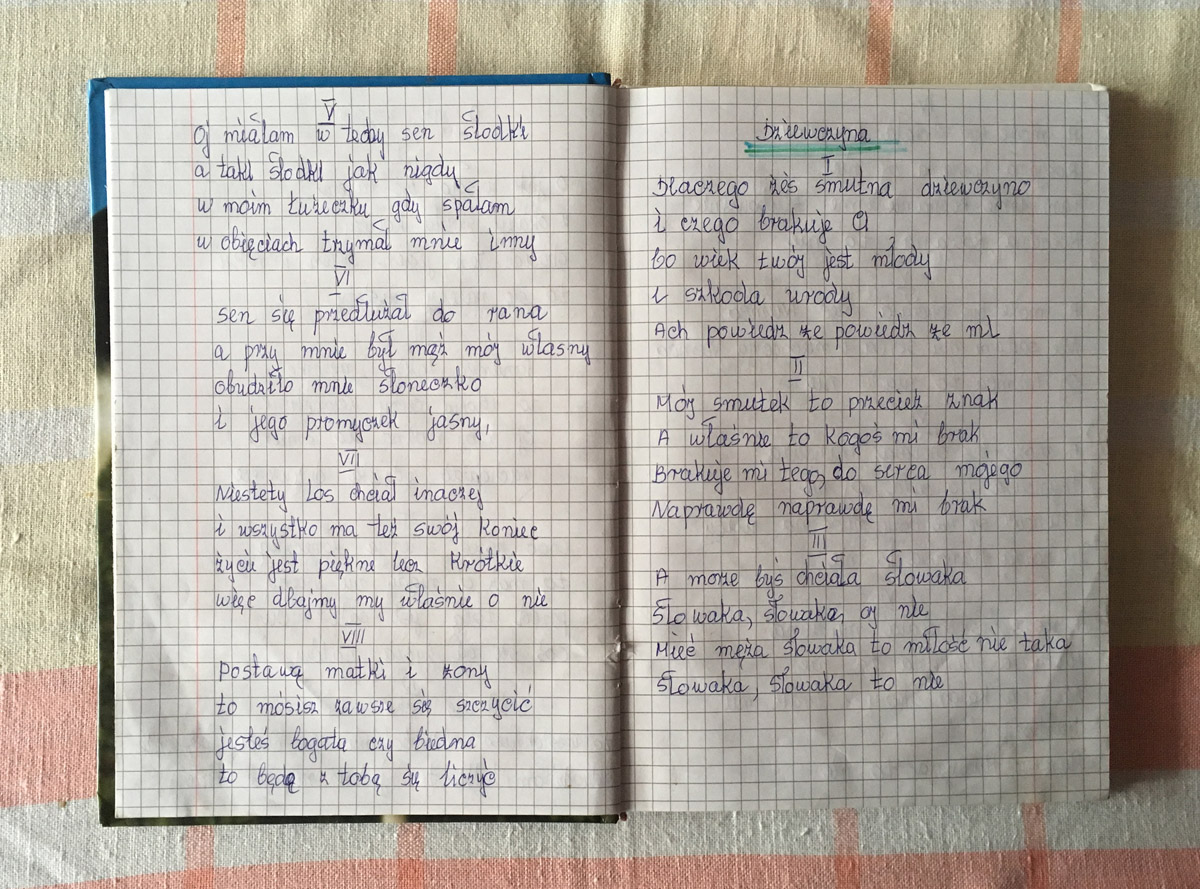 V
Oj miałam w tedy sen słodki
a taki słodki jak nigdy
w moim łużeczku gdy spałam
w obięciach trzymał mnie inny
VI
sen się przedłużał do rana
a przy mnie był mąż mój własny
obudziło mnie słoneczko
i jego promyczek jasny,
VI
Niestety los chciał inaczej
i wszystko ma też swój koniec
życie jest piękne lecz krótkie
więc dbajmy my właśnie o nie
VIII
Postawą matki i żony
to mósisz zawsze się szczycić
jesteś bogata czy biedna
to będą z tobą się liczyć
Dziewczyna
I
Dlaczego żeś smutna dziewczyno
i czego brakuje Ci
bo wiek twój jest młody
i szkoda urody
Ach powiedz że powiedz że mi
II
Mój smutek to przecież znak
A właśnie to kogoś mi brak
Brakuje mi tego, do serca mojego
Naprawdę naprawdę mi brak
III
A może byś chciała słowaka
Słowaka, słowaka, oj nie
Mieć męża słowaka to miłość nie taka
Słowaka, słowaka to nie